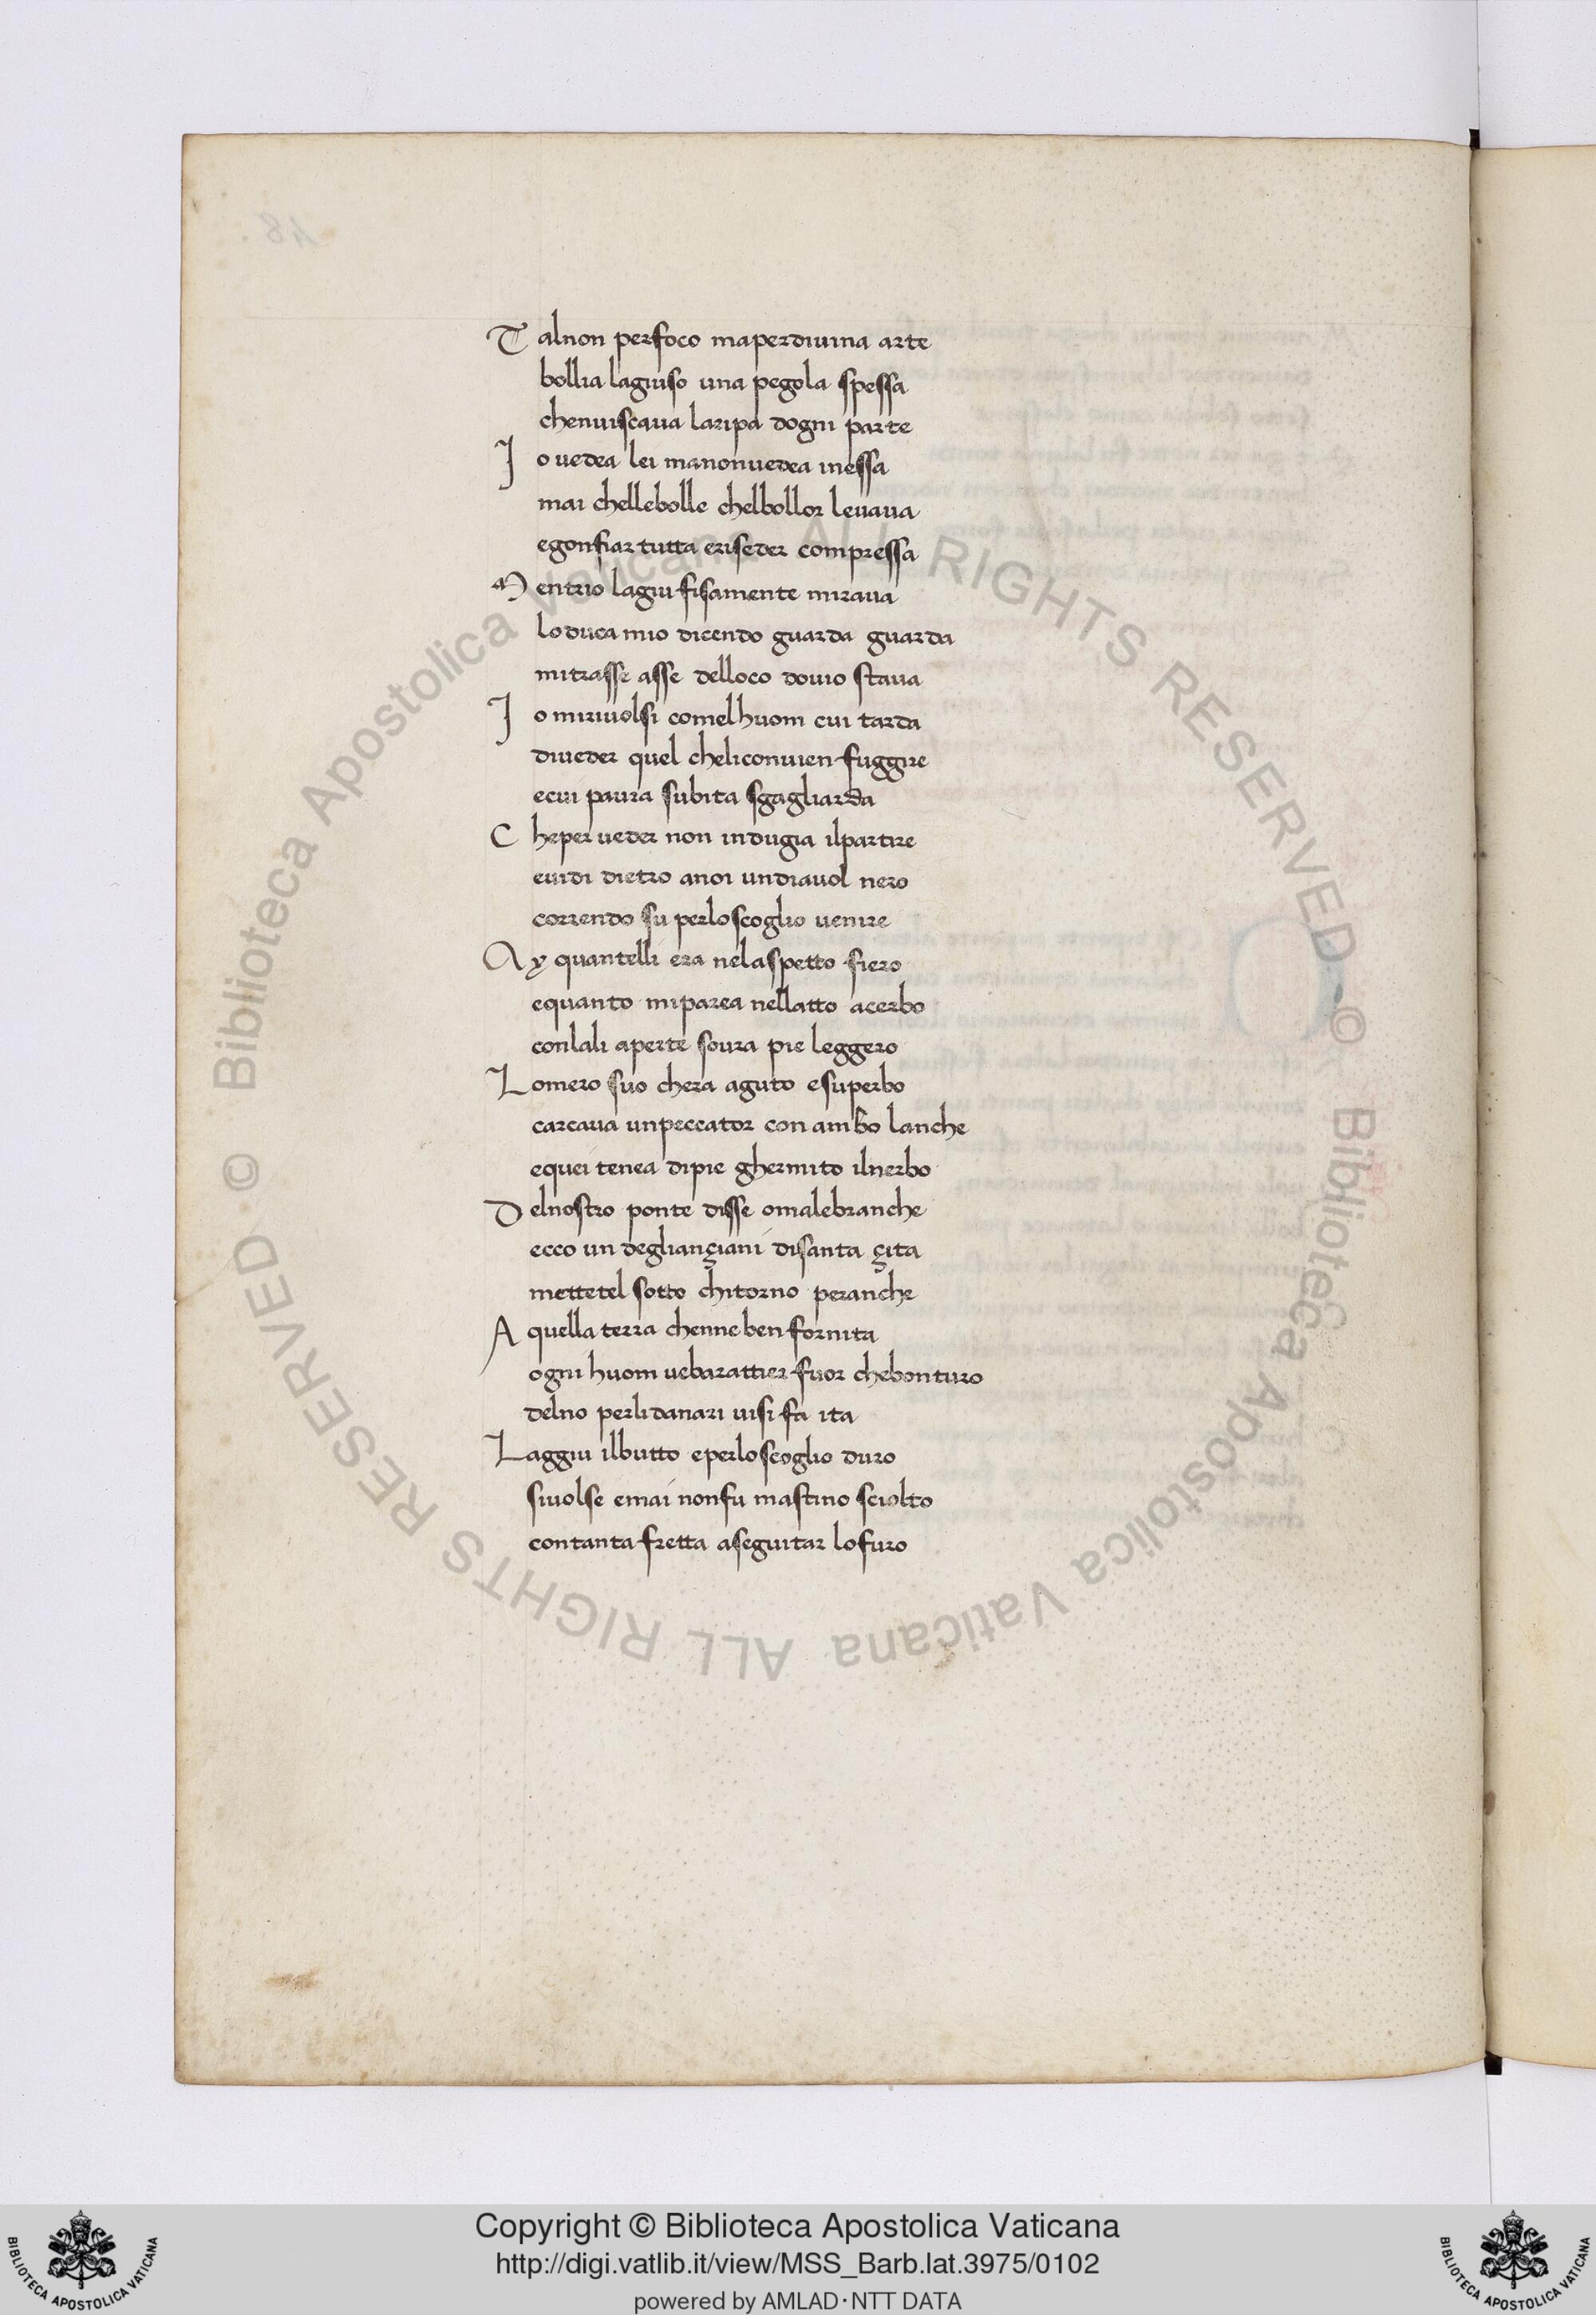 Talnon perfoco maperdiuina arte
bollia lagiuso una pegola spessa
chenuiscaua laripa dogni parte
Io uedea lei manonuedea inessa
mai chellebolle chelbollor leuaua
egonfiar tutta eriseder compressa
Mentrio lagiu fisamente miraua
loduca mio dicendo guarda guarda
mitrasse asse delloco douio staua
Io miriuolsi comelhuom cui tarda
diueder quel cheliconuien fuggire
ecui paura subita sgagliarda
Cheper ueder non indugia ilpartire
euidi dietro anoi undiauol nero
correndo su perloscoglio uenire
Ay quantelli era nelaspetto fiero
equanto miparea nellatto acerbo
conlali aperte soura pie leggero
Lomero suo chera aguto esuperbo
carcaua unpeccator con ambo lanche
equei tenea dipie ghermito ilnerbo
Delnostro ponte disse omalebranche
ecco un degliançiani disanta çita
mettetel sotto chitorno peranche
A quella terra chenne ben fornita
ogni huom uebarattier fuor chebonturo
delno perlidanari uisi fa ita
Laggiu ilbutto eperloscoglio duro
siuolse emai nonfu mastino sciolto
contanta fretta aseguitar lofuro
© Biblioteca Apostolica Vaticana ALL RIGHTS RESERVED
© Biblioteca Apostolica Vaticana ALL RIGHTS RESERVED
Copyright © Biblioteca Apostolica Vaticana
http://digi.vatlib.it/view/MSS_Barb.lat.3975/0102
powered by AMLAD·NTT DATA
BIBLIOTECA APOSTOLICA VATICANA
BIBLIOTECA APOSTOLICA VATICANA